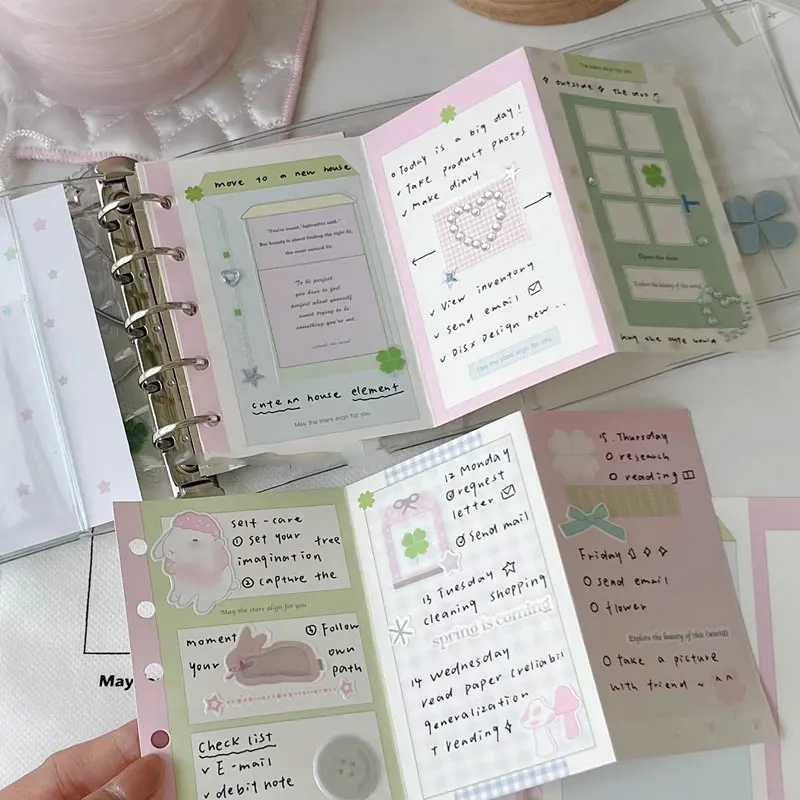 move to a new house
"You're sweet," Aphrodite said."
But beauty is about finding the right fit,
the most natural fit.
To be perfect,
you have to feel
perfect about yourself
avoid trying to be
something you're not.
cute ^^ house element
May the stars align for you
o Today is a big day!
✓ Take product photos
✓ Make diary
✓ View inventory
✓ send email
✓ Disx Design new..
May the stars align for you
The stars align for you
outside
Open the door
Explore the beauty of this world
hug the cute world
self-care
① set your tree
imagination
② capture the
May the stars align for you
moment
your
③ Follow
own
path
Check list
✓ E-mail
✓ debit note
12 Monday
request
letter
send mail
13 Tuesday
cleaning shopping
spring is coming
14 Wednesday
read paper (reliabil
generalization
Treading
15. Thursday
O research
O reading
Friday
O send email
O flower
Explore the beauty of this (world)
O take a picture
with friend ~ ^^
May